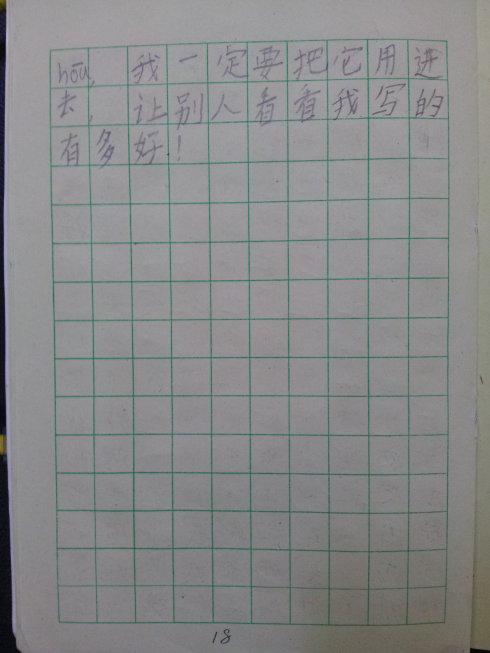 hōu, 我一定要把它用进
去,让别人看看我写的
有多好!
18